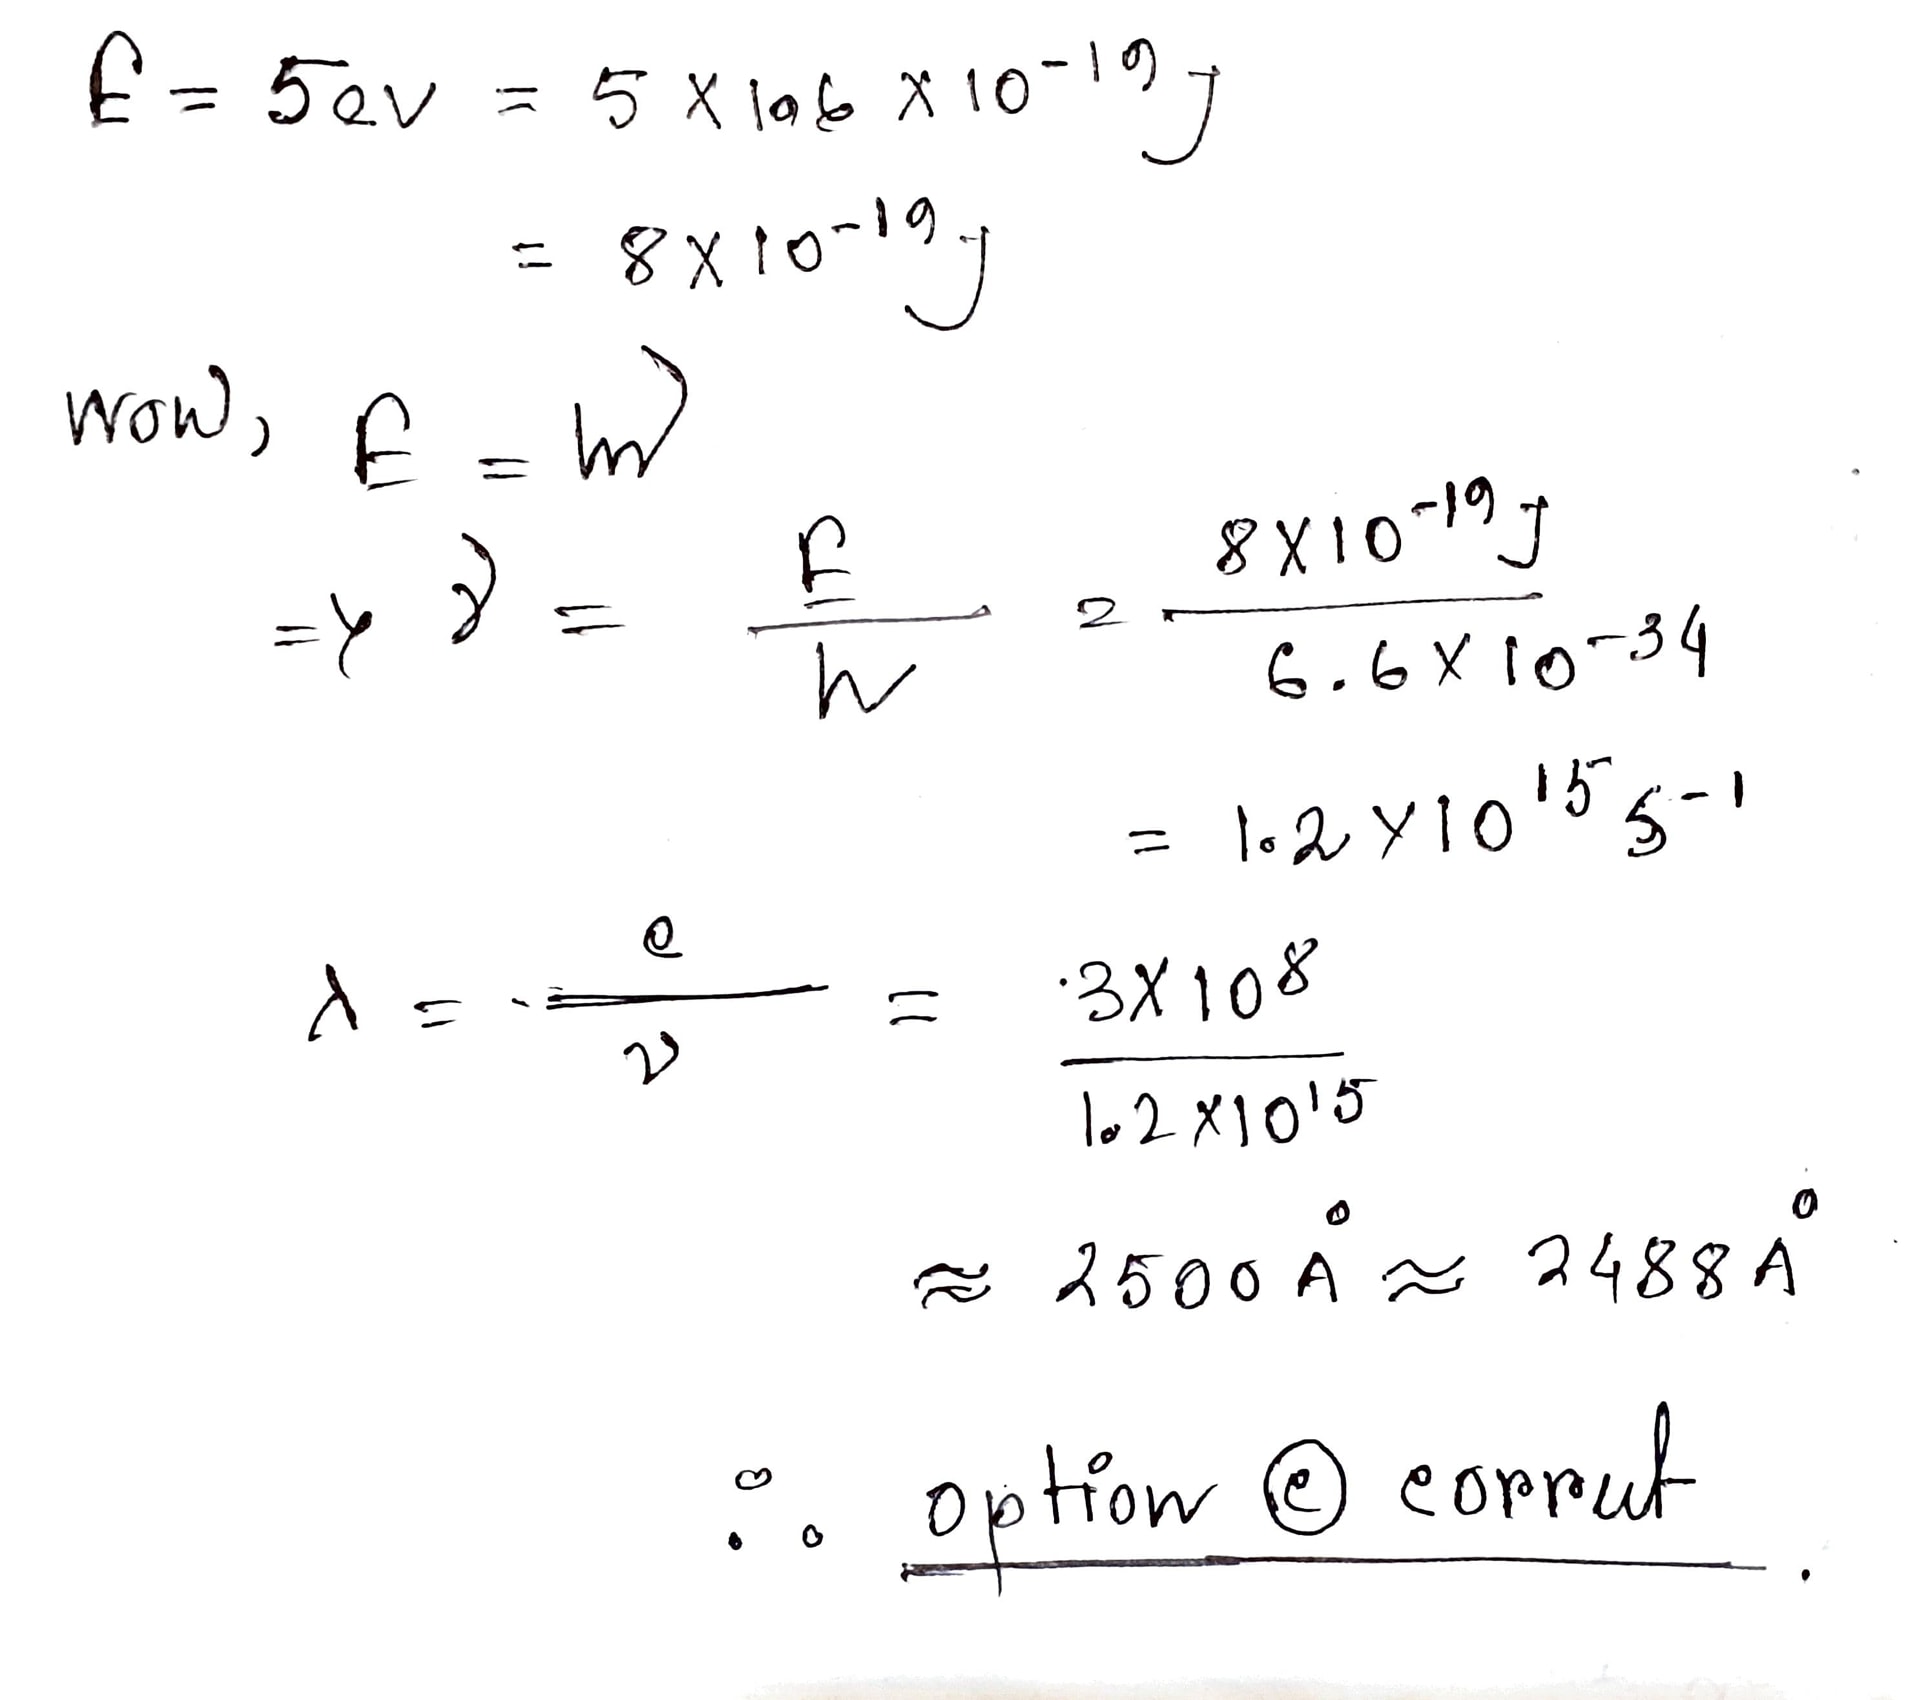 E = 5ev = 5 × 1.6 × 10⁻¹⁹ J
= 8 × 10⁻¹⁹ J
Now, E = hν
=> ν = E/h = 8 × 10⁻¹⁹ J / 6.6 × 10⁻³⁴
= 1.2 × 10¹⁵ s⁻¹
λ = c/ν = 3 × 10⁸ / 1.2 × 10¹⁵
≈ 2500 Å ≈ 2488 Å
∴ option ⓒ correct.